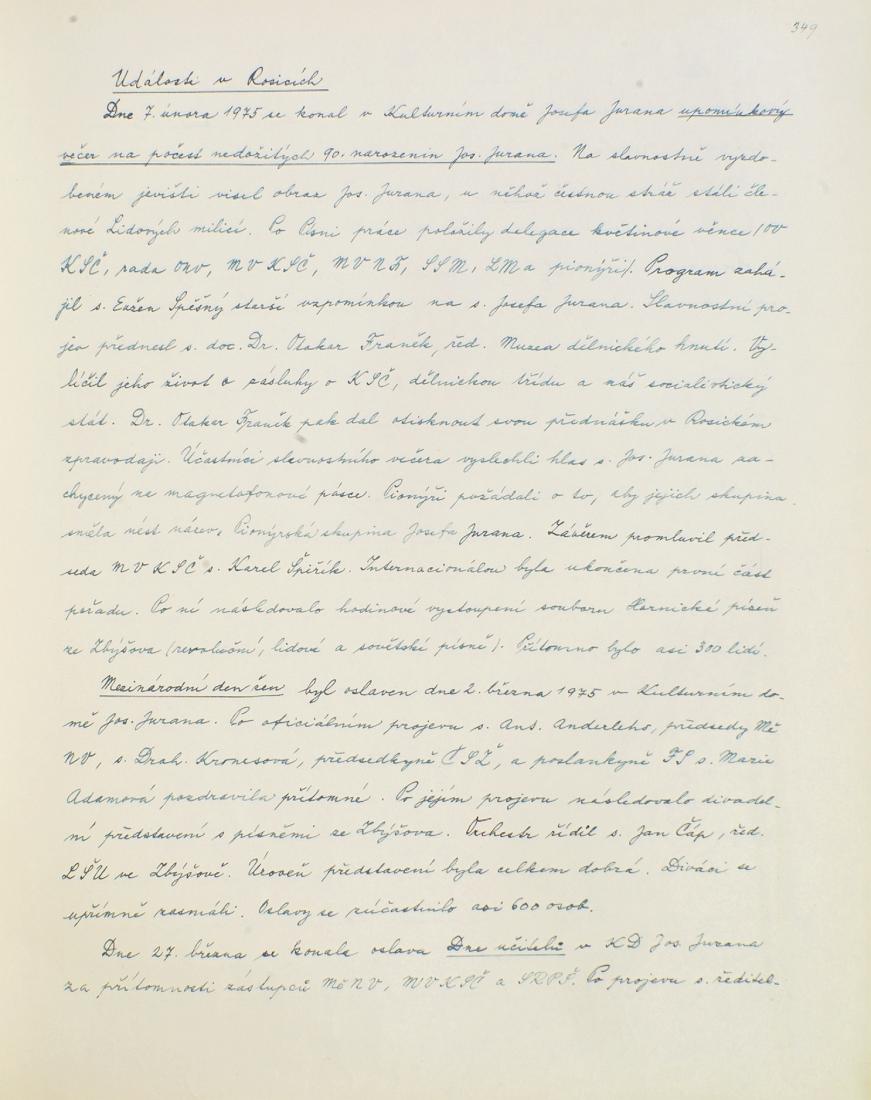 349
Události v Rosicích
Dne 7. února 1975 se konal v Kulturním domě Josefa Jurana upomínkový
večer na počest nedožitých 90. narozenin Jos. Jurana. Na slavnostně vyzdo-
beném jevišti visel obraz Jos. Jurana, u něhož čestnou stráž stáli čle-
nové Lidových milicí. Po Písni práce položily delegace květinové věnce /OV
KSČ, rada ONV, MV KSČ, MV NF, SSM, LM a pionýři/. Program zahá-
jil s. Evžen Spěšný starší vzpomínkou na s. Josefa Jurana. Slavnostní pro-
jev přednesl s. doc. Dr. Otakar Franěk, řed. Muzea dělnického hnutí. Vy-
líčil jeho život a zásluhy o KSČ, dělnickou třídu a náš socialistický
stát. Dr. Otakar Franěk pak dal otisknout svou přednášku v Rosickém
zpravodaji. Účastníci slavnostního večera vyslechli hlas s. Jos. Jurana za-
chycený na magnetofonové pásce. Pionýři požádali o to, aby jejich skupina
směla nést název, Pionýrská skupina Josefa Jurana. Závěrem promluvil před-
seda MV KSČ s. Karel Špiřík. Internacionálou byla ukončena první část
pořadu. Po ní následovalo hodinové vystoupení souboru Hornické písně
ze Zbýšova (revoluční, lidové a sovětské písně). Přítomno bylo asi 300 lidí.
Mezinárodní den žen byl oslaven dne 2. března 1975 v Kulturním do-
mě Jos. Jurana. Po oficiálním projevu s. Ant. Anderleho, předsedy Mě
NV, s. Drah. Kronesová, předsedkyně ČSŽ, a poslankyně FS s. Marie
Adamová pozdravila přítomné. Po jejím projevu následovalo divadel-
ní představení s písněmi ze Zbýšova. Orchestr řídil s. Jan Čáp, řed.
LŠU ve Zbýšově. Úroveň představení byla celkem dobrá. Diváci se
upřímně zasmáli. Oslavy se zúčastnilo asi 600 osob.
Dne 27. března se konala oslava Dne učitelů v KD Jos. Jurana
za přítomnosti zástupců MěNV, MV KSČ a SRPŠ. Po projevu s. ředitel-